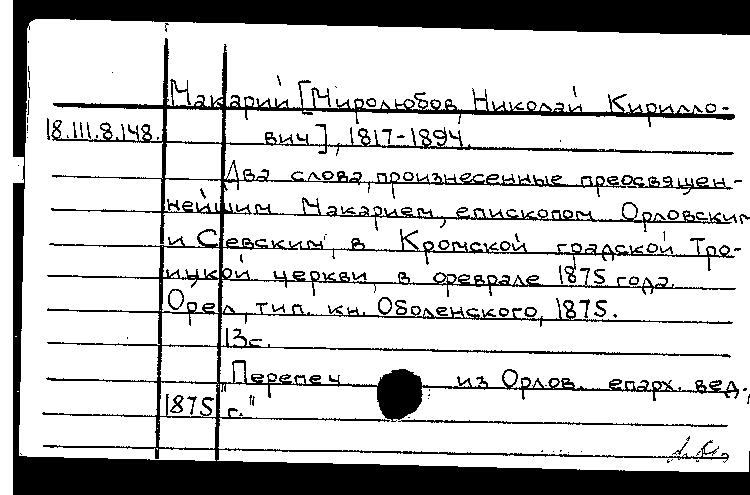 Макарий [Миролюбов, Николай Кирилло-
18.III.8.148. вич], 1817-1894.
Два слова, произнесенные преосвящен-
нейшим Макарием, епископом Орловским
и Севским, в Кромской градской Тро-
ицкой церкви, в феврале 1875 года.
Орел, тип. кн. Оболенского, 1875.
13с.
"Перепеч из Орлов. епарх. вед.,
1875 г."